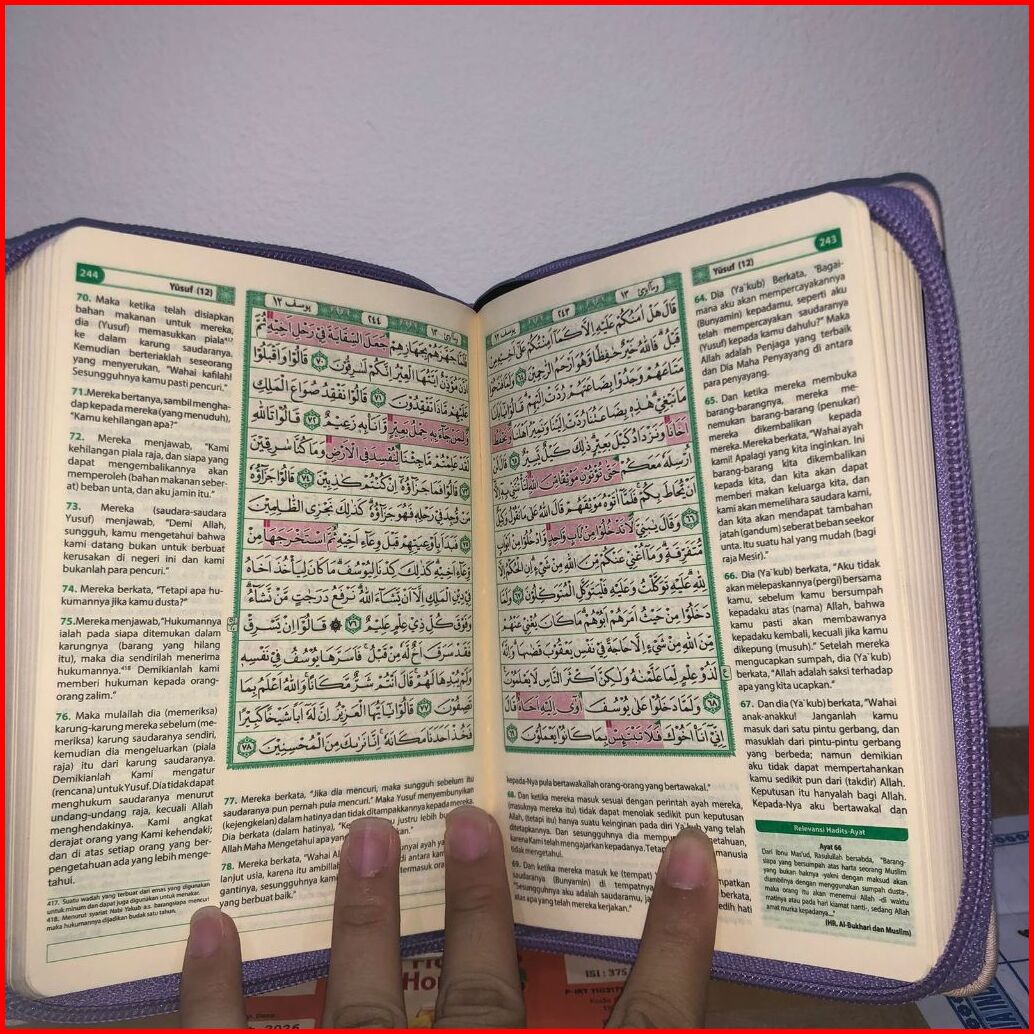 243
Yūsuf (12)
64. Dia (Ya'kub) Berkata, "Bagai-
mana aku akan mempercayakannya
(Bunyamin) kepadamu, seperti aku
telah mempercayakan saudaranya
(Yusuf) kepada kamu dahulu?" Maka
Allah adalah Penjaga yang terbaik
dan Dia Maha Penyayang di antara
para penyayang.
65. Dan ketika mereka membuka
barang-barangnya, mereka me-
nemukan barang-barang (penukar)
mereka dikembalikan kepada
mereka. Mereka berkata, "Wahai ayah
kami! Apalagi yang kita inginkan. Ini
barang-barang kita dikembalikan
kepada kita, dan kita akan dapat
memberi makan keluarga kita, dan
kami akan memelihara saudara kami,
dan kita akan mendapat tambahan
jatah (gandum) seberat beban seekor
unta. Itu suatu hal yang mudah (bagi
raja Mesir)."
66. Dia (Ya'kub) berkata, "Aku tidak
akan melepaskannya (pergi) bersama
kamu, sebelum kamu bersumpah
kepadaku atas (nama) Allah, bahwa
kamu pasti akan membawanya
kepadaku kembali, kecuali jika kamu
dikepung (musuh)." Setelah mereka
mengucapkan sumpah, dia (Ya'kub)
berkata, "Allah adalah saksi terhadap
apa yang kita ucapkan."
67. Dan dia (Ya'kub) berkata, "Wahai
anak-anakku! Janganlah kamu
masuk dari satu pintu gerbang, dan
masuklah dari pintu-pintu gerbang
yang berbeda; namun demikian
aku tidak dapat mempertahankan
kamu sedikit pun dari (takdir) Allah.
Keputusan itu hanyalah bagi Allah.
Kepada-Nya aku bertawakal dan
وما أبرئ ١٣
٢٤٣
يوسف ١٢
قَالَ هَلْ اٰمَنُكُمْ عَلَيْهِ اِلَّا كَمَآ اَمِنْتُكُمْ عَلٰٓى اَخِيْهِ مِنْ
قَبْلُۗ فَاللّٰهُ خَيْرٌ حٰفِظًا وَّهُوَ اَرْحَمُ الرّٰحِمِيْنَ ٦٤ وَلَمَّا فَتَحُوْا
مَتَاعَهُمْ وَجَدُوْا بِضَاعَتَهُمْ رُدَّتْ اِلَيْهِمْۗ قَالُوْا يٰٓاَبَانَا
مَا نَبْغِيْۗ هٰذِهٖ بِضَاعَتُنَا رُدَّتْ اِلَيْنَا وَنَمِيْرُ اَهْلَنَا وَنَحْفَظُ
اَخَانَا وَنَزْدَادُ كَيْلَ بَعِيْرٍۗ ذٰلِكَ كَيْلٌ يَّسِيْرٌ ٦٥ قَالَ لَنْ
اُرْسِلَهٗ مَعَكُمْ حَتّٰى تُؤْتُوْنِ مَوْثِقًا مِّنَ اللّٰهِ لَتَأْتُنَّنِيْ بِهٖٓ اِلَّآ
اَنْ يُّحَاطَ بِكُمْۚ فَلَمَّآ اٰتَوْهُ مَوْثِقَهُمْ قَالَ اللّٰهُ عَلٰى مَا نَقُوْلُ وَكِيْلٌ
٦٦ وَقَالَ يٰبَنِيَّ لَا تَدْخُلُوْا مِنْۢ بَابٍ وَّاحِدٍ وَّادْخُلُوْا مِنْ اَبْوَابٍ
مُّتَفَرِّقَةٍۗ وَمَآ اُغْنِيْ عَنْكُمْ مِّنَ اللّٰهِ مِنْ شَيْءٍۗ اِنِ الْحُكْمُ اِلَّا
لِلّٰهِۗ عَلَيْهِ تَوَكَّلْتُ وَعَلَيْهِ فَلْيَتَوَكَّلِ الْمُتَوَكِّلُوْنَ ٦٧ وَلَمَّا
دَخَلُوْا مِنْ حَيْثُ اَمَرَهُمْ اَبُوْهُمْۗ مَا كَانَ يُغْنِيْ عَنْهُمْ
مِّنَ اللّٰهِ مِنْ شَيْءٍ اِلَّا حَاجَةً فِيْ نَفْسِ يَعْقُوْبَ قَضٰىهَاۗ وَاِنَّهٗ
لَذُوْ عِلْمٍ لِّمَا عَلَّمْنٰهُ وَلٰكِنَّ اَكْثَرَ النَّاسِ لَا يَعْلَمُوْنَ
٦٨ وَلَمَّا دَخَلُوْا عَلٰى يُوْسُفَ اٰوٰٓى اِلَيْهِ اَخَاهُ قَالَ
اِنِّيْٓ اَنَا۠ اَخُوْكَ فَلَا تَبْتَىِٕسْ بِمَا كَانُوْا يَعْمَلُوْنَ ٦٩
kepada-Nya pula bertawakallah orang-orang yang bertawakal."
68. Dan ketika mereka masuk sesuai dengan perintah ayah mereka,
(masuknya mereka itu) tidak dapat menolak sedikit pun keputusan
Allah, (tetapi itu) hanya suatu keinginan pada diri Ya'kub yang telah
ditetapkannya. Dan sesungguhnya dia mempunyai pengetahuan,
karena Kami telah mengajarkan kepadanya. Tetapi manusia
tidak mengetahui.
69. Dan ketika mereka masuk ke (tempat) menempatkan
saudaranya (Bunyamin) di tempatnya
"Sesungguhnya aku adalah saudaramu, ja sedih hati
atas apa yang telah mereka kerjakan."
Relevansi Hadits-Ayat
Ayat 66
Dari Ibnu Mas'ud, Rasulullah bersabda, "Barang-
siapa yang bersumpah atas harta seorang Muslim
yang bukan haknya -yakni dengan maksud akan
diambilnya dengan menggunakan sumpah dusta-,
maka orang itu akan menemui Allah -di waktu
matinya atau pada hari kiamat nanti-, sedang Allah
amat murka kepadanya..."
(HR. Al-Bukhari dan Muslim)
244
Yūsuf (12)
70. Maka ketika telah disiapkan
bahan makanan untuk mereka,
dia (Yusuf) memasukkan piala⁴¹⁷
ke dalam karung saudaranya.
Kemudian berteriaklah seseorang
yang menyerukan, "Wahai kafilah!
Sesungguhnya kamu pasti pencuri."
71. Mereka bertanya, sambil mengha-
dap kepada mereka (yang menuduh),
"Kamu kehilangan apa?"
72. Mereka menjawab, "Kami
kehilangan piala raja, dan siapa yang
dapat mengembalikannya akan
memperoleh (bahan makanan seber-
at) beban unta, dan aku jamin itu."
73. Mereka (saudara-saudara
Yusuf) menjawab, "Demi Allah,
sungguh, kamu mengetahui bahwa
kami datang bukan untuk berbuat
kerusakan di negeri ini dan kami
bukanlah para pencuri."
74. Mereka berkata, "Tetapi apa hu-
kumannya jika kamu dusta?"
75. Mereka menjawab, "Hukumannya
ialah pada siapa ditemukan dalam
karungnya (barang yang hilang
itu), maka dia sendirilah menerima
hukumannya."⁴¹⁸ Demikianlah kami
memberi hukuman kepada orang-
orang zalim."
76. Maka mulailah dia (memeriksa)
karung-karung mereka sebelum (me-
meriksa) karung saudaranya sendiri,
kemudian dia mengeluarkan (piala
raja) itu dari karung saudaranya.
Demikianlah Kami mengatur
(rencana) untuk Yusuf. Dia tidak dapat
menghukum saudaranya menurut
undang-undang raja, kecuali Allah
menghendakinya. Kami angkat
derajat orang yang Kami kehendaki;
dan di atas setiap orang yang ber-
pengetahuan ada yang lebih menge-
tahui.
وما أبرئ ١٣
٢٤٤
يوسف ١٢
فَلَمَّا جَهَّزَهُمْ بِجَهَازِهِمْ جَعَلَ السِّقَايَةَ فِيْ رَحْلِ اَخِيْهِ ثُمَّ
اَذَّنَ مُؤَذِّنٌ اَيَّتُهَا الْعِيْرُ اِنَّكُمْ لَسٰرِقُوْنَ ٧٠ قَالُوْا وَاَقْبَلُوْا
عَلَيْهِمْ مَّاذَا تَفْقِدُوْنَ ٧١ قَالُوْا نَفْقِدُ صُوَاعَ الْمَلِكِ
وَلِمَنْ جَاۤءَ بِهٖ حِمْلُ بَعِيْرٍ وَّاَنَا۠ بِهٖ زَعِيْمٌ ٧٢ قَالُوْا تَاللّٰهِ
لَقَدْ عَلِمْتُمْ مَّا جِئْنَا لِنُفْسِدَ فِى الْاَرْضِ وَمَا كُنَّا سٰرِقِيْنَ
٧٣ قَالُوْا فَمَا جَزَاۤؤُهٗٓ اِنْ كُنْتُمْ كٰذِبِيْنَ ٧٤ قَالُوْا جَزَاۤؤُهٗ
مَنْ وُّجِدَ فِيْ رَحْلِهٖ فَهُوَ جَزَاۤؤُهٗۗ كَذٰلِكَ نَجْزِى الظّٰلِمِيْنَ
٧٥ فَبَدَاَ بِاَوْعِيَتِهِمْ قَبْلَ وِعَاۤءِ اَخِيْهِ ثُمَّ اسْتَخْرَجَهَا مِنْ
وِّعَاۤءِ اَخِيْهِۗ كَذٰلِكَ كِدْنَا لِيُوْسُفَۗ مَا كَانَ لِيَأْخُذَ اَخَاهُ
فِيْ دِيْنِ الْمَلِكِ اِلَّآ اَنْ يَّشَاۤءَ اللّٰهُۗ نَرْفَعُ دَرَجٰتٍ مَّنْ نَّشَاۤءُۗ
وَفَوْقَ كُلِّ ذِيْ عِلْمٍ عَلِيْمٌ ٧٦ ۞ قَالُوْٓا اِنْ يَّسْرِقْ
فَقَدْ سَرَقَ اَخٌ لَّهٗ مِنْ قَبْلُۚ فَاَسَرَّهَا يُوْسُفُ فِيْ نَفْسِهٖ
وَلَمْ يُبْدِهَا لَهُمْۚ قَالَ اَنْتُمْ شَرٌّ مَّكَانًاۚ وَاللّٰهُ اَعْلَمُ بِمَا
تَصِفُوْنَ ٧٧ قَالُوْا يٰٓاَيُّهَا الْعَزِيْزُ اِنَّ لَهٗٓ اَبًا شَيْخًا كَبِيْرًا
فَخُذْ اَحَدَنَا مَكَانَهٗۚ اِنَّا نَرٰىكَ مِنَ الْمُحْسِنِيْنَ ٧٨
77. Mereka berkata, "Jika dia mencuri, maka sungguh sebelum itu
saudaranya pun pernah pula mencuri." Maka Yusuf menyembunyikan
(kejengkelan) dalam hatinya dan tidak ditampakkannya kepada mereka.
Dia berkata (dalam hatinya), justru lebih buruk
Allah Maha Mengetahui apa yang
78. Mereka berkata, "Wahai Al mempunyai ayah yang
lanjut usia, karena itu ambillah di antara kami
gantinya, sesungguhnya kami termasuk orang
yang berbuat baik."
417. Suatu wadah yang terbuat dari emas yang digunakan
untuk minum dan dapat juga digunakan untuk menakar.
418. Menurut syariat Nabi Yakub a.s. barangsiapa mencuri
maka hukumannya dijadikan budak satu tahun.
Ho
ISI : 375
P-IRT
2026